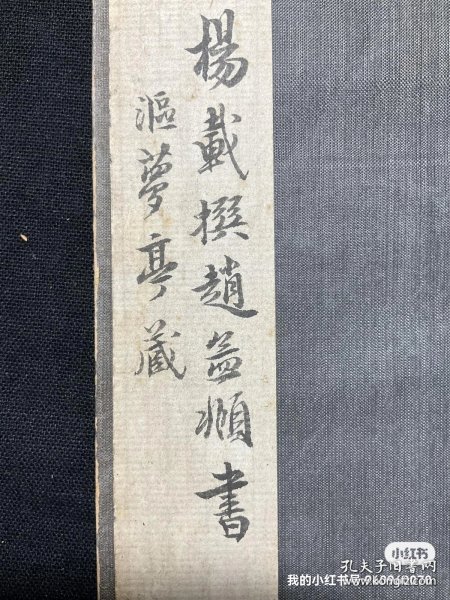 楊載撰趙孟頫書
漚夢亭藏
小红书
孔夫子旧书网
我的小红书号:960960070